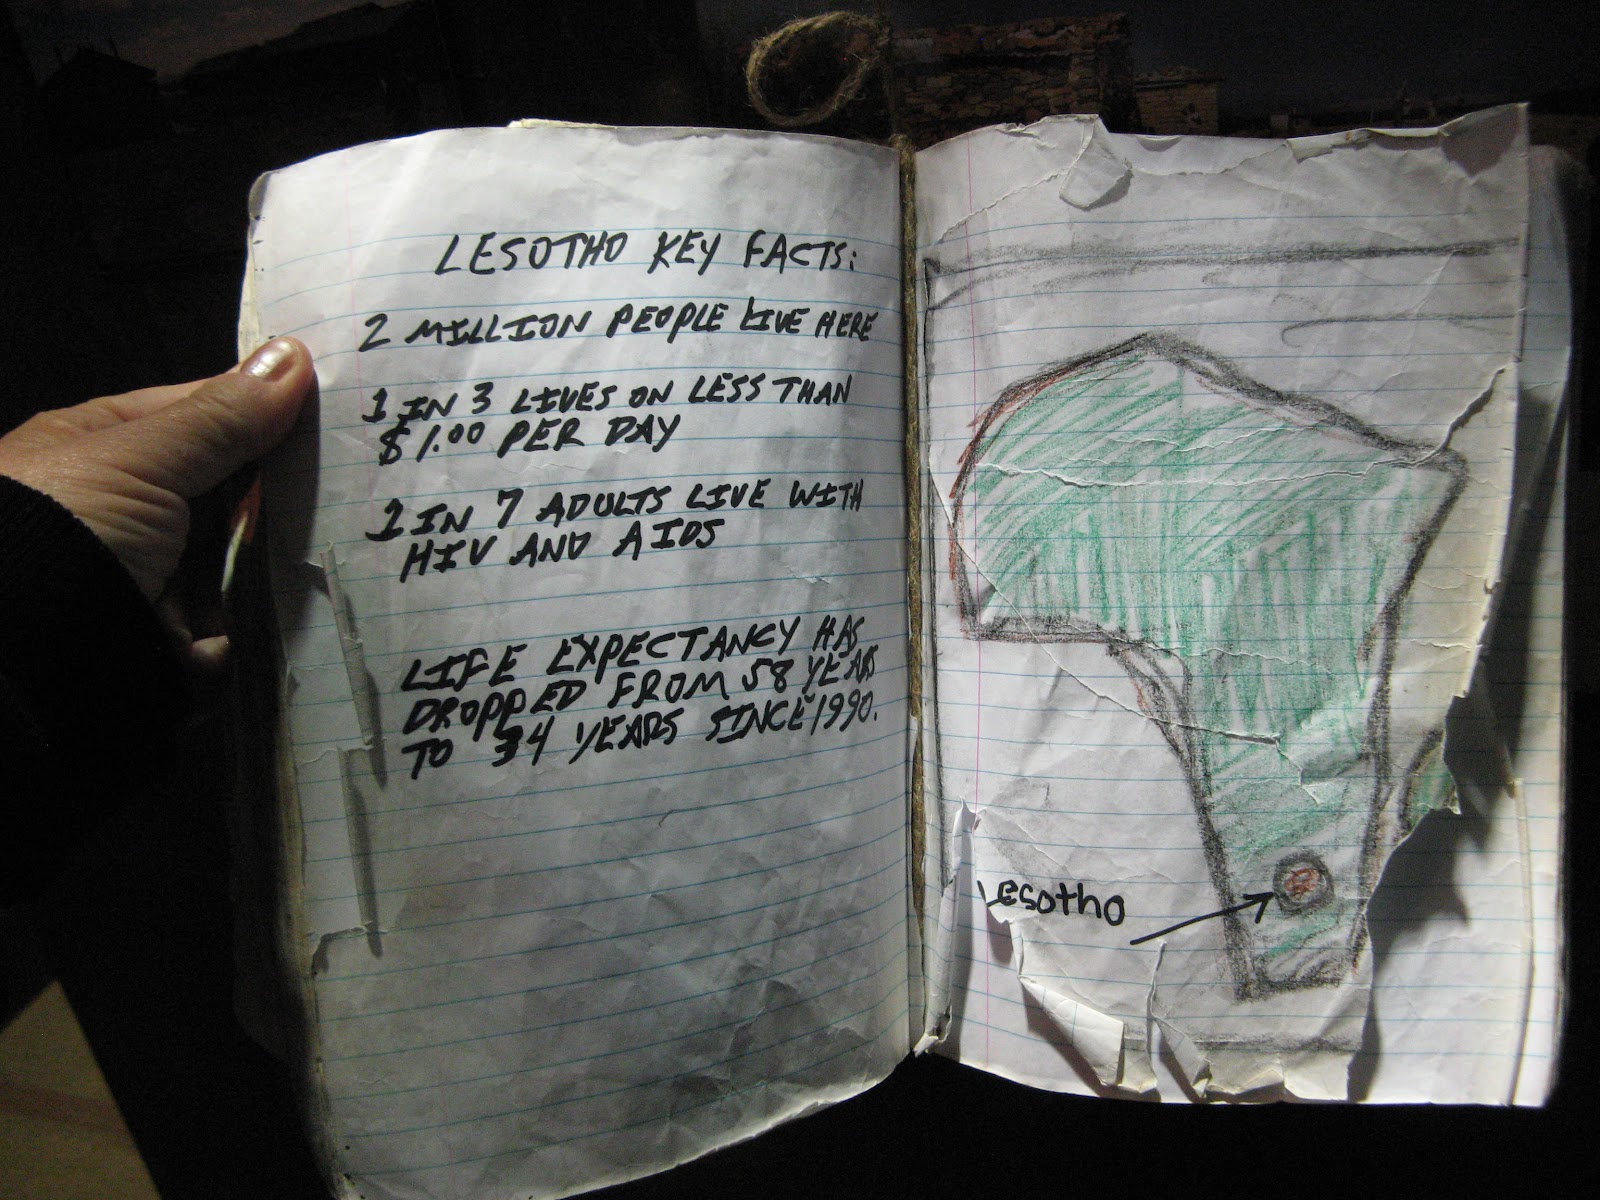 LESOTHO KEY FACTS:
2 MILLION PEOPLE LIVE HERE
1 IN 3 LIVES ON LESS THAN
$1.00 PER DAY
1 IN 7 ADULTS LIVE WITH
HIV AND AIDS
LIFE EXPECTANCY HAS
DROPPED FROM 58 YEARS
TO 34 YEARS SINCE 1990.
Lesotho